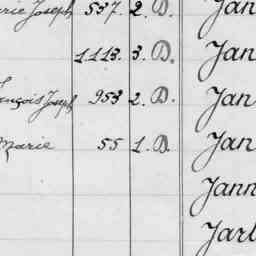 rie Joseph 537. 2. D. Jan
1113. 3. D. Jan
François Joseph 953 2. D. Jan
Marie 55 1. D. Jan
Jann
Jarl